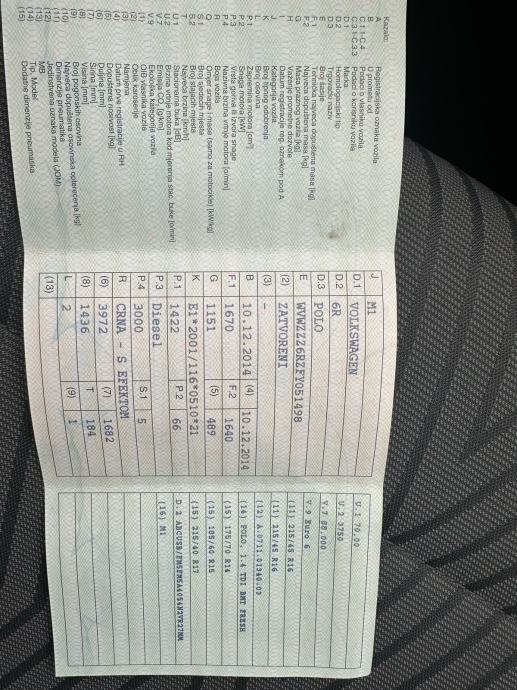 Kazalo:
A Registracijska oznaka vozila
B U prometu od
C.1.1-C.4 Podaci o vlasniku vozila
C.3.1-C.3.3 Podaci o korisniku vozila
D.1 Marka
D.2 Homologacijski tip
D.3 Trgovački naziv
E Broj šasije
F.1 Tehnički najveća dopuštena masa [kg]
F.2 Najveća dopuštena masa [kg]
G Masa praznog vozila [kg]
H Važenje prometne dozvole
I Datum registracije reg. oznakom pod A
J Kategorija vozila
K Broj tipnog odobrenja
L Broj osovina
P.1 Zapremina motora [cm³]
P.2 Snaga motora [kW]
P.3 Vrsta goriva ili izvora snage
P.4 Nazivna brzina vrtnje motora [o/min]
R Boja vozila
Q Omjer snage i mase (samo za motocikle) [kW/kg]
S.1 Broj sjedećih mjesta
S.2 Broj stajaćih mjesta
T Najveća brzina [km/h]
U.1 Stacionarna buka [dB]
U.2 Brzina vrtnje motora kod mjerenja stac. buke [o/min]
V.7 Emisija CO₂ [g/km]
V.9 Ekološka kategorija vozila
(1) OIB vlasnika vozila
(2) Oblik karoserije
(3) Namjena
(4) Datum prve registracije u RH
(5) Dopuštena nosivost [kg]
(6) Duljina [mm]
(7) Širina [mm]
(8) Visina [mm]
(9) Broj pogonskih osovina
(10) Najveća dopuštena osovinska opterećenja [kg]
(11) Dimenzije pneumatika
(12) Jedinstvena oznaka modela (JOM)
(13) MB
(14) Tip, Model
(15) Dodatne dimenzije pneumatika
J M1
D.1 VOLKSWAGEN
D.2 6R
D.3 POLO
E WVWZZZ6RZFY051498
(2) ZATVORENI
(3) -
B 10.12.2014 (4) 10.12.2014
F.1 1670 F.2 1640
G 1151 (5) 489
K E1*2001/116*0510*21
P.1 1422 P.2 66
P.3 Diesel
P.4 3000 S.1 5
R CRNA - S EFEKTOM
(6) 3972 (7) 1682
(8) 1436 T 184
L 2 (9) 1
(13)
U.1 70.00
U.2 3750
V.7 88.000
V.9 Euro 6
(11) 215/45 R16
(11) 215/45 R16
(12) A.0711.01340.03
(14) POLO, 1.4 TDI BMT FRESH
(15) 175/70 R14
(15) 185/60 R15
(15) 215/40 R17
(16) M1